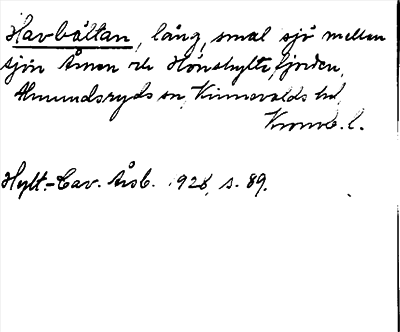 Havbältan, lång, smal sjö mellan
sjön Åsnen och Hönshyltefjorden,
Almundsryds sn, Kinnevalds hd,
Kronob. l.
Hylt.-Cav. Årsb. 1928, s. 89.